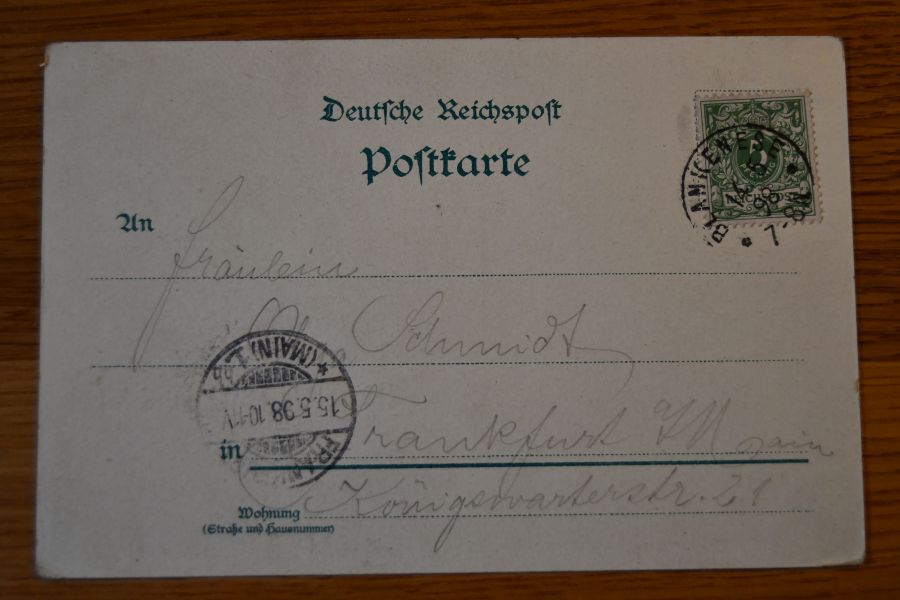 Deutsche Reichspost
Postkarte
BLANKENESE
14 5 98
7-8N
5
REICHSPOST
An
Fräulein
Schmidt
FRANKFURT (MAIN) 1
15.5.98.10-11V
in Frankfurt a/Main
Wohnung Königswarterstr. 21
(Straße und Hausnummer)